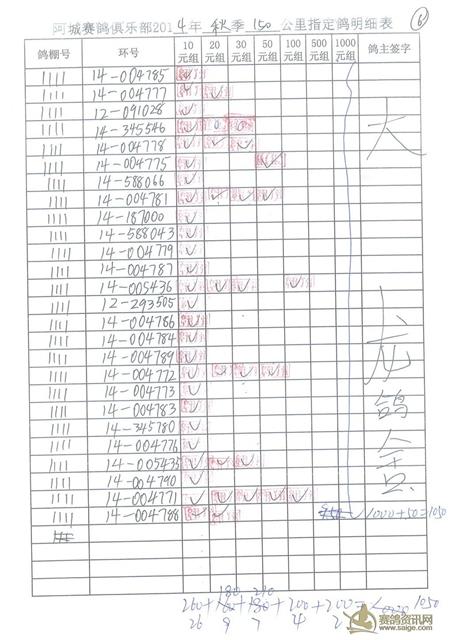 阿城赛鸽俱乐部2014年秋季150公里指定鸽明细表 6
鸽棚号 环号 10元组 20元组 30元组 50元组 100元组 500元组 1000元组 鸽主签字
1111 14-004785 ✓
1111 14-004777 ✓ ✓
1111 12-091028 ✓
1111 14-345546 ✓
1111 14-004778 ✓ ✓ ✓
1111 14-004775 ✓ ✓
1111 14-588066 ✓
1111 14-004781 ✓ ✓ ✓ ✓
1111 14-187000 ✓
1111 14-588043 ✓
1111 14-004779 ✓
1111 14-004787 ✓
1111 14-005436 ✓ ✓ ✓ ✓
1111 12-293505 ✓
1111 14-004786 ✓
1111 14-004784 ✓
1111 14-004789 ✓
1111 14-004772 ✓ ✓ ✓ ✓
1111 14-004773 ✓
1111 14-004783 ✓
1111 14-345780 ✓
1111 14-004776 ✓
1111 14-005435 ✓ ✓ ✓
1111 14-004790 ✓
1111 14-004771 ✓ ✓ ✓ ✓ ✓
1111 14-004788 ✓ ✓ 1000+50=1050
大龙鸽舍
180 210
260+ + +200+200= 1050
26 9 7 4 2
赛鸽资讯网
www.saige.com